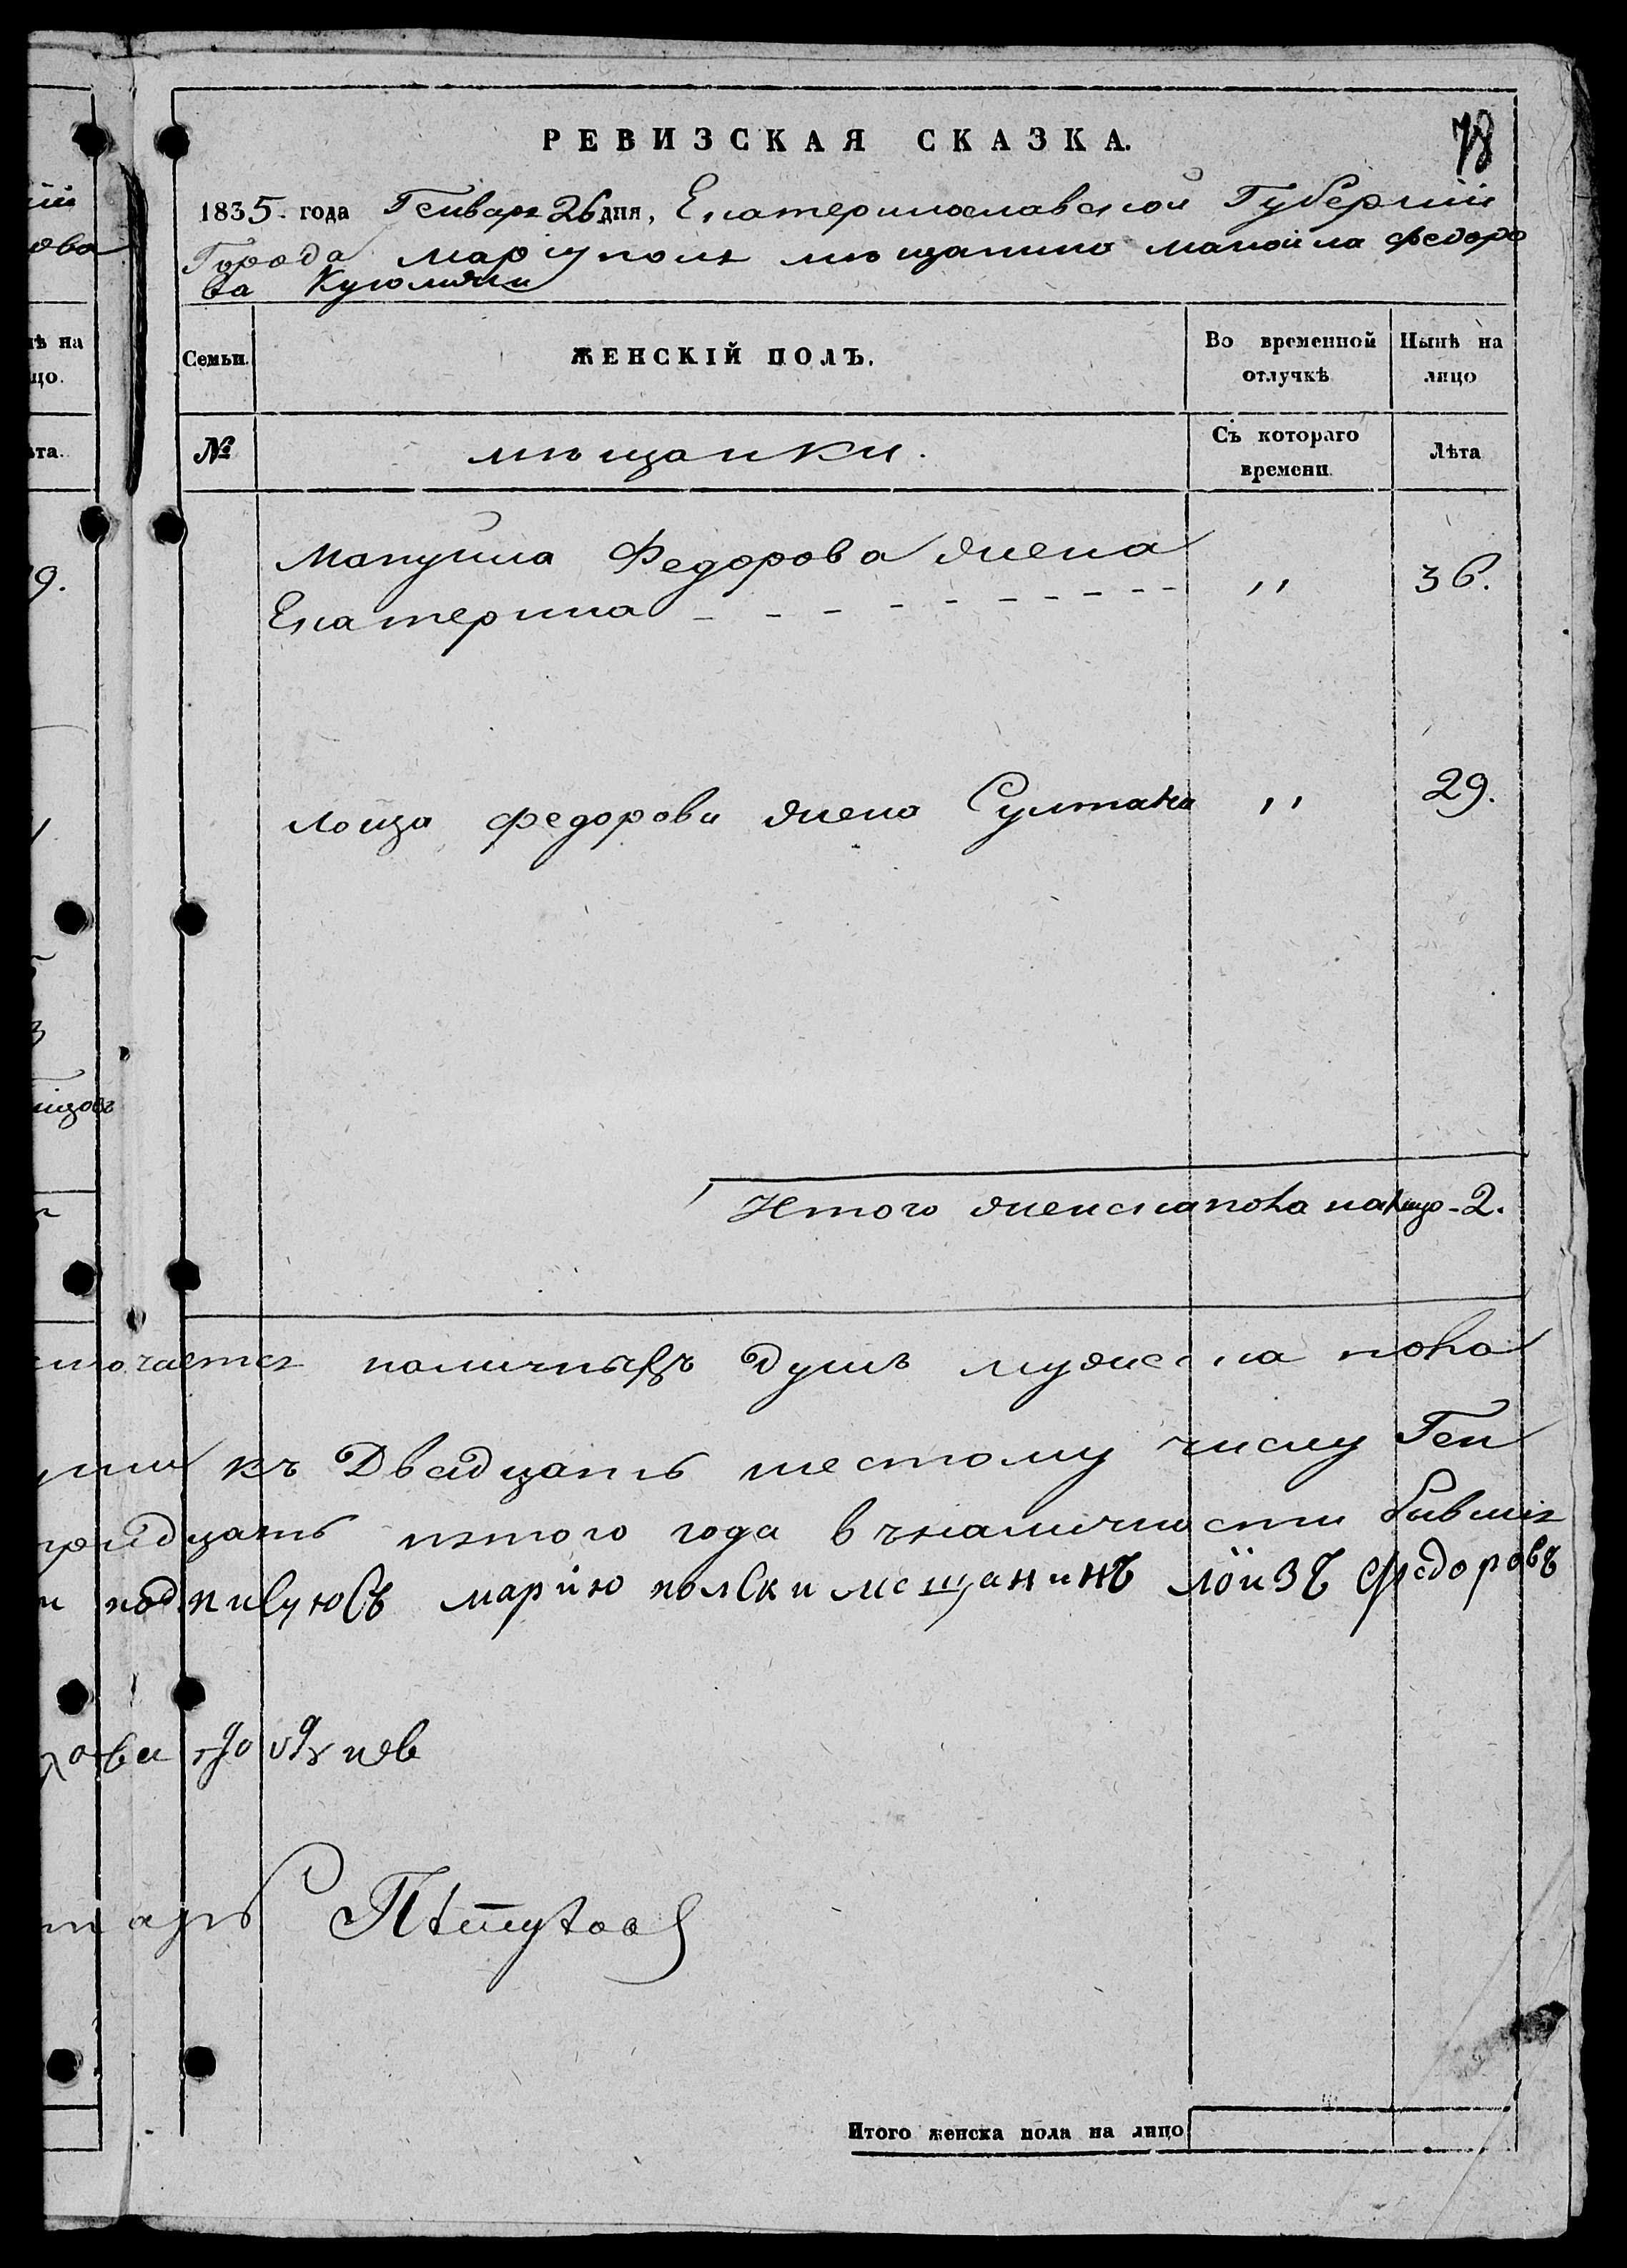 78
РЕВИЗСКАЯ СКАЗКА.
1835. года Генваря 26 дня, Екатеринославской Губернии
Города Мариуполя мѣщанина Манойла Федоро
ва Куюмджи
Семьи.
ЖЕНСКІЙ ПОЛЪ.
Во временной отлучкѣ
Нынѣ на лицо
№
мѣщанки.
Съ котораго времени
Лѣта
Мануила Федорова жена
Екатерина - - - - - - - - - „ 36.
Лоиза Федорова жена Султана „ 29.
Итого женска пола налицо - 2.
наличныхъ душъ мужеска пола
къ Двадцать шестому числу Ген
тридцать пятого года в наличности бывшія
подписуюсъ мариюполски мещанинъ лоизъ Федоровъ
Итого женска пола на лицо